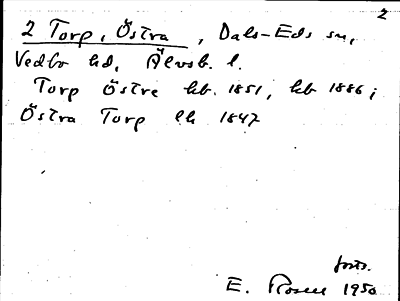 2
2 Torp, Östra, Dals-Eds sn,
Vedbo hd, Älvsb. l.
Torp Östre hb. 1851, hb 1886;
Östra Torp lh 1847
forts.
E. Rosell 1950